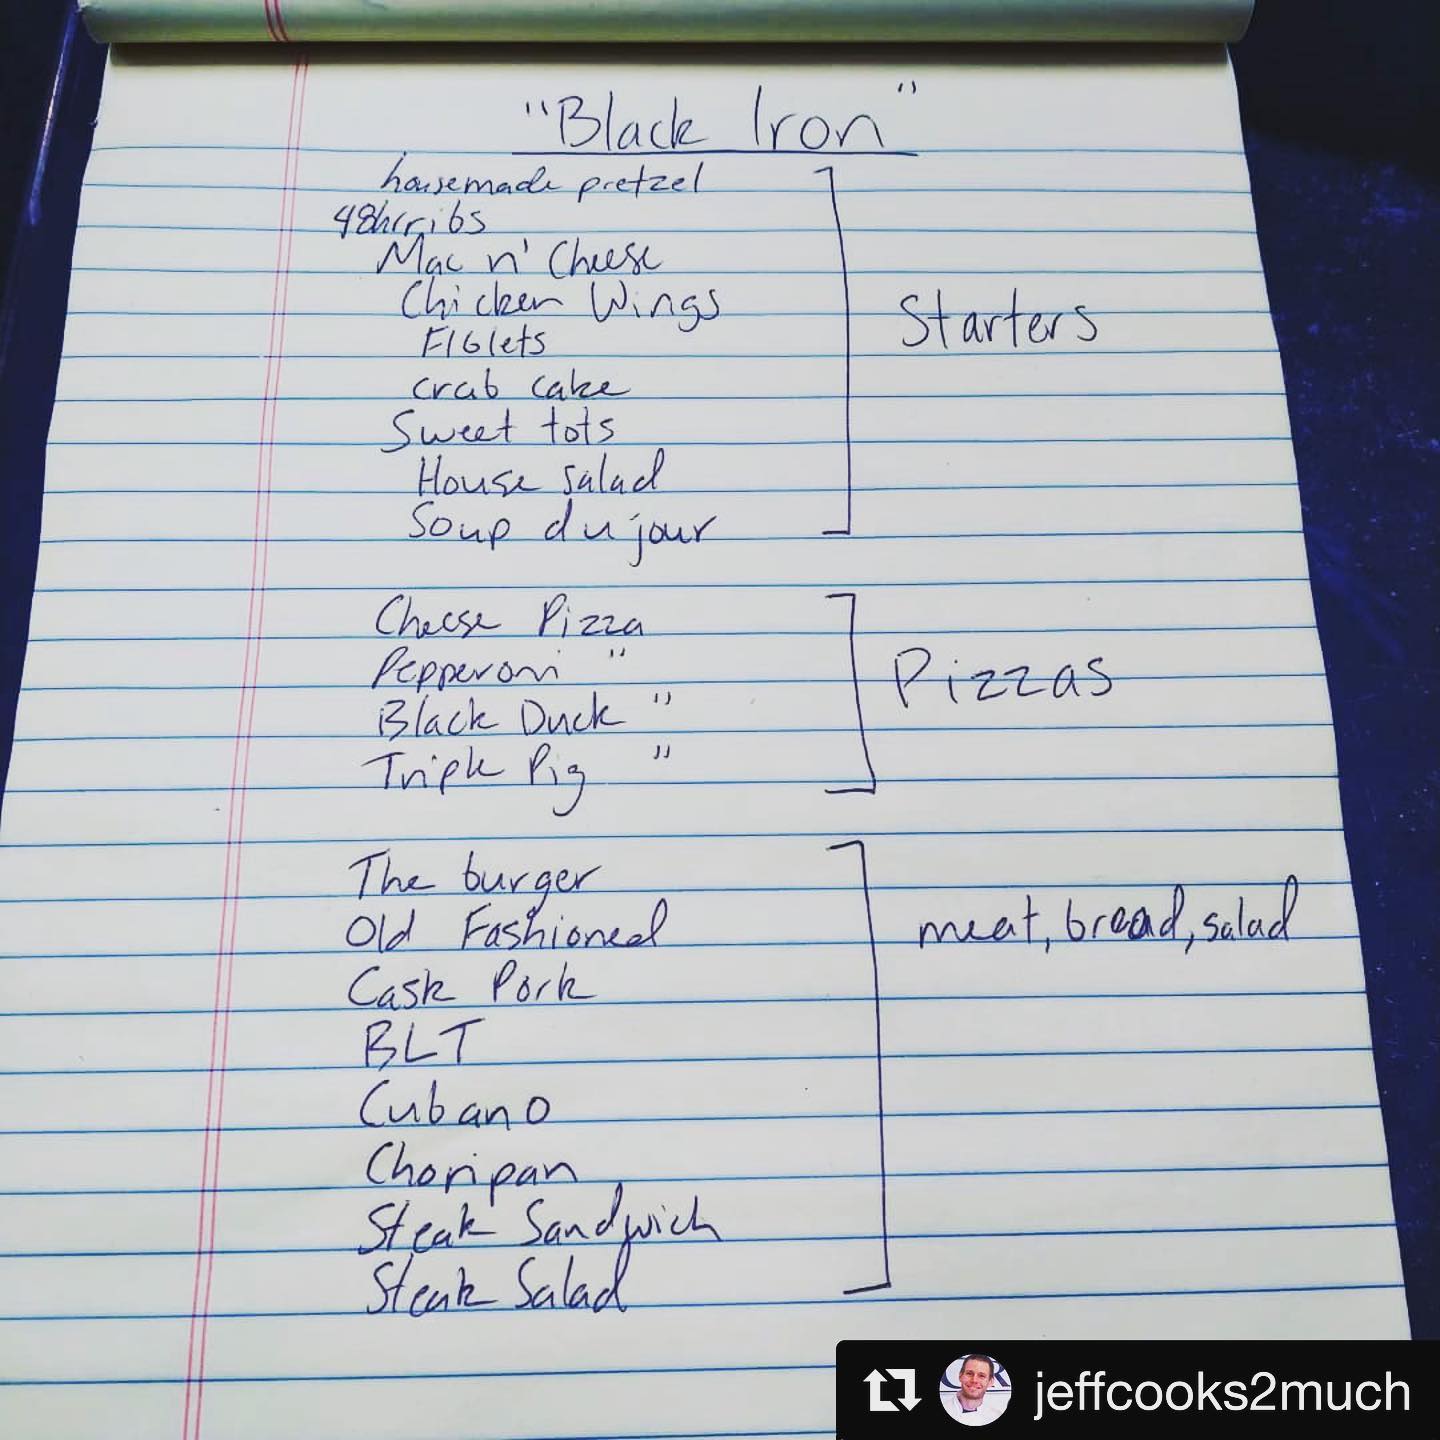 "Black Iron"
housemade pretzel
48hr ribs
Mac n' Cheese
Chicken Wings
F16lets
crab cake
Sweet tots
House salad
Soup du jour
Starters
Cheese Pizza
Pepperoni "
Black Duck "
Triple Pig "
Pizzas
The burger
Old Fashioned
Cask Pork
BLT
Cubano
Choripan
Steak Sandwich
Steak Salad
meat, bread, salad
jeffcooks2much